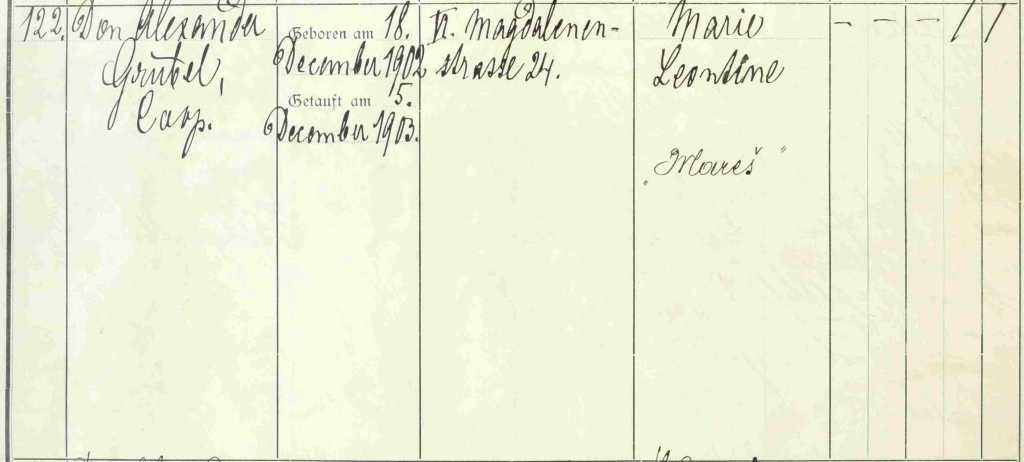 122.
Don Alexander
Grübel,
Coop.
Geboren am 18.
December 1902
Getauft am 5.
December 1903.
VI. Magdalenen-
strasse 24.
Marie
Leontine
„Mareš"
— — — / /